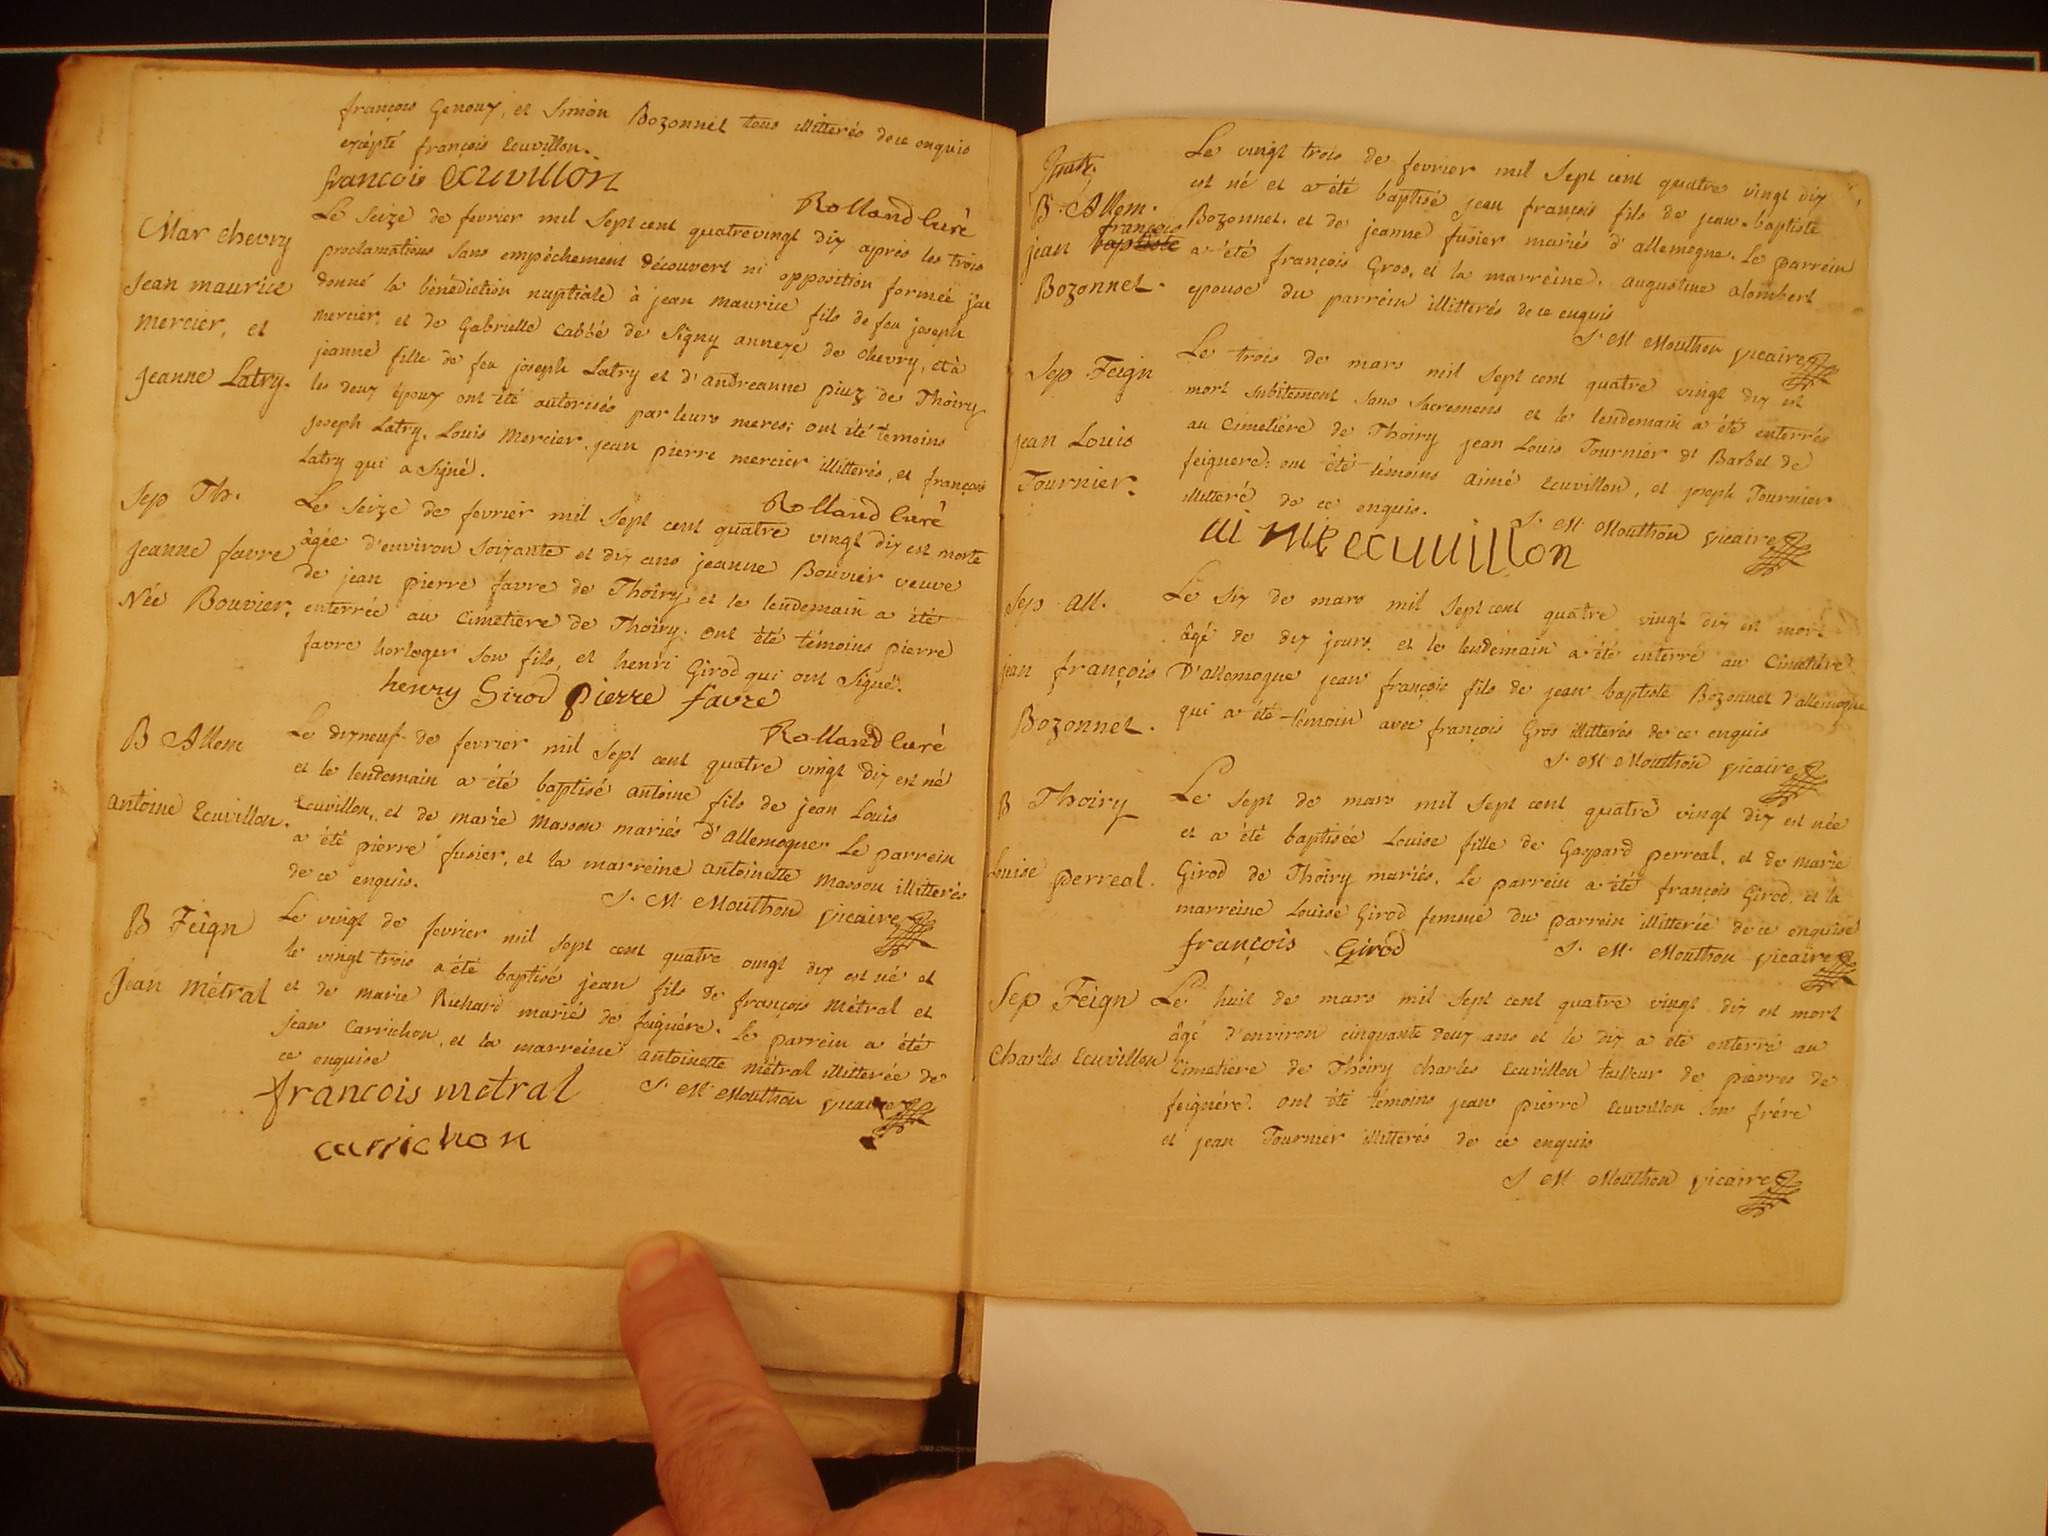 françois Genoux, et Simon Bozonnet tous illitterés de ce enquis
excépté françois Ecuvillon.
françois Ecuvillon
Rolland Curé
Mar chevry
Jean maurice
mercier, et
Jeanne Latry.
Le Seize de fevrier mil Sept cent quatre vingt dix après les trois
proclamations Sans empêchement découvert ni opposition formée j'ai
donné la bénédiction nuptiale à jean maurice fils de feu joseph
mercier, et de Gabrielle Cabbé de Signy annexe de chevry, et à
jeanne fille de feu joseph Latry et d'andréanne piuz de Thoiry
les deux époux ont été autorisés par leurs meres; ont été temoins
joseph Latry, Louis Mercier, jean pierre mercier illitterés, et françois
Latry qui a Signé.
Rolland Curé
Sep Th.
Jeanne favre
Née Bouvier.
Le Seize de fevrier mil Sept cent quatre vingt dix est morte
âgée d'environ Soixante et dix ans jeanne Bouvier veuve
de jean pierre favre de Thoiry et le lendemain a été
enterrée au Cimetière de Thoiry: ont été témoins pierre
favre horloger Son fils, et henri Girod qui ont Signé.
henry Girod pierre favre
Rolland Curé
B Allem
antoine Ecuvillon.
Le dixneuf de fevrier mil Sept cent quatre vingt dix est né
et le lendemain a été baptisé antoine fils de jean Louis
Ecuvillon, et de marie Masson mariés d'allemogne. Le parrein
a été pierre fusier, et la marreine antoinette Masson illitterés
de ce enquis.
J. M. Mouthon vicaire
B Feign
Jean Métral
Le vingt de fevrier mil Sept cent quatre vingt dix est né et
le vingt trois a été baptisé jean fils de françois Métral et
et de marie Richard mariés de feiguére. Le parrein a été
jean Carrichon, et la marreine antoinette métral illitterée de
ce enquise
J. M. Mouthon vicaire
francois metral
carrichon
B. Allem.
françois
jean baptiste
Bozonnet.
Le vingt trois de fevrier mil Sept cent quatre vingt dix
est né et a été baptisé jean françois fils de jean-baptiste
Bozonnet, et de jeanne fusier mariés d'allemogne. Le parrein
a été françois Gros, et la marreine, augustine alombert
epouse du parrein illitterés de ce enquis
J. M Mouthon vicaire
Sep Feign
jean Louis
Tournier.
Le trois de mars mil Sept cent quatre vingt dix est
mort Subitement Sans Sacremens et le lendemain a été enterrés
au Cimetière de Thoiry jean Louis Tournier dt Barbet de
feiguere: ont été témoins aimé Ecuvillon, et joseph Tournier
illitteré de ce enquis.
J. M. Mouthon vicaire
aimé ecuvillon
Sep All.
jean françois
Bozonnet.
Le Six de mars mil Sept cent quatre vingt dix est mort
âgé de dix jours et le lendemain a été enterré au Cimetière
D'allemogne jean françois fils de jean baptiste Bozonnet d'allemogne
qui a été témoin avec françois Gros illitterés de ce enquis
J. M Mouthon vicaire
B Thoiry
Louise perreal.
Le Sept de mars mil Sept cent quatre vingt dix est née
et a été baptisée Louise fille de Gaspard perreal, et de Marie
Girod de Thoiry mariés. Le parrein a été françois Girod, et la
marreine Louise Girod femme du parrein illitterée de ce enquise
françois Girod
J. M. Mouthon vicaire
Sep Feign
Charles Ecuvillon
Le huit de mars mil Sept cent quatre vingt dix est mort
âgé d'environ cinquante deux ans et le dix a été enterré au
Cimetière de Thoiry Charles Ecuvillon tailleur de pierres de
feiguére. ont été témoins jean pierre Ecuvillon Son frére
et jean Tournier illitterés de ce enquis
J M Mouthon vicaire